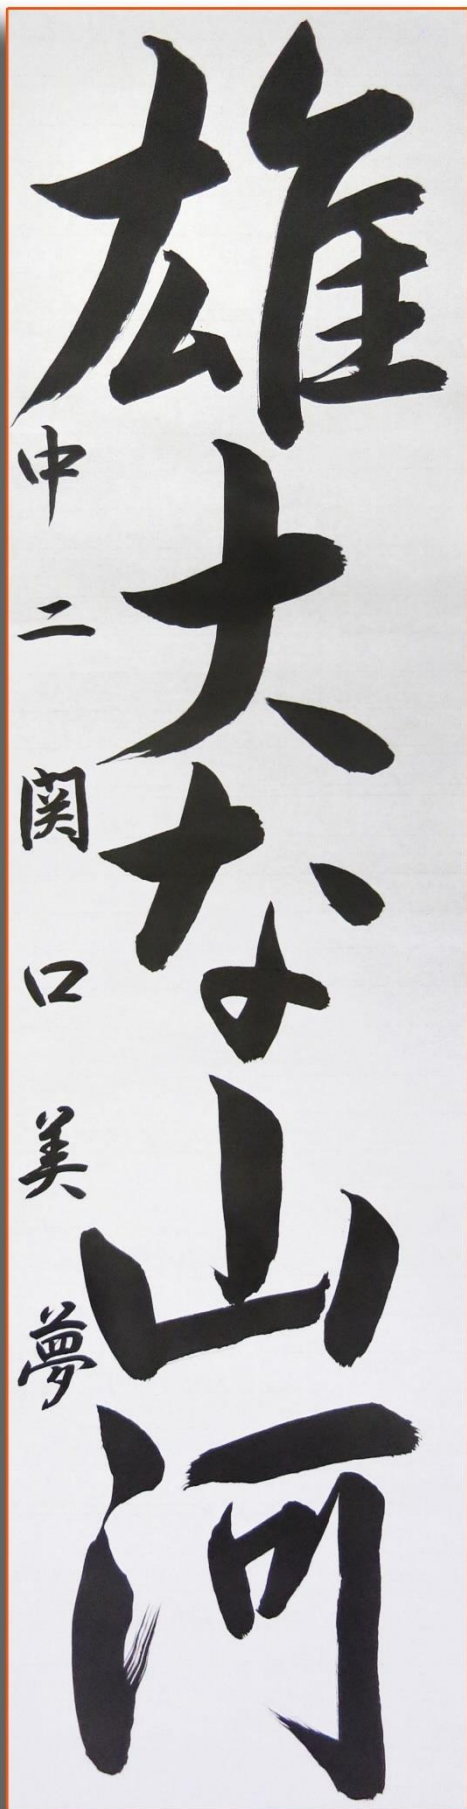 雄大な山河
中二関口美夢